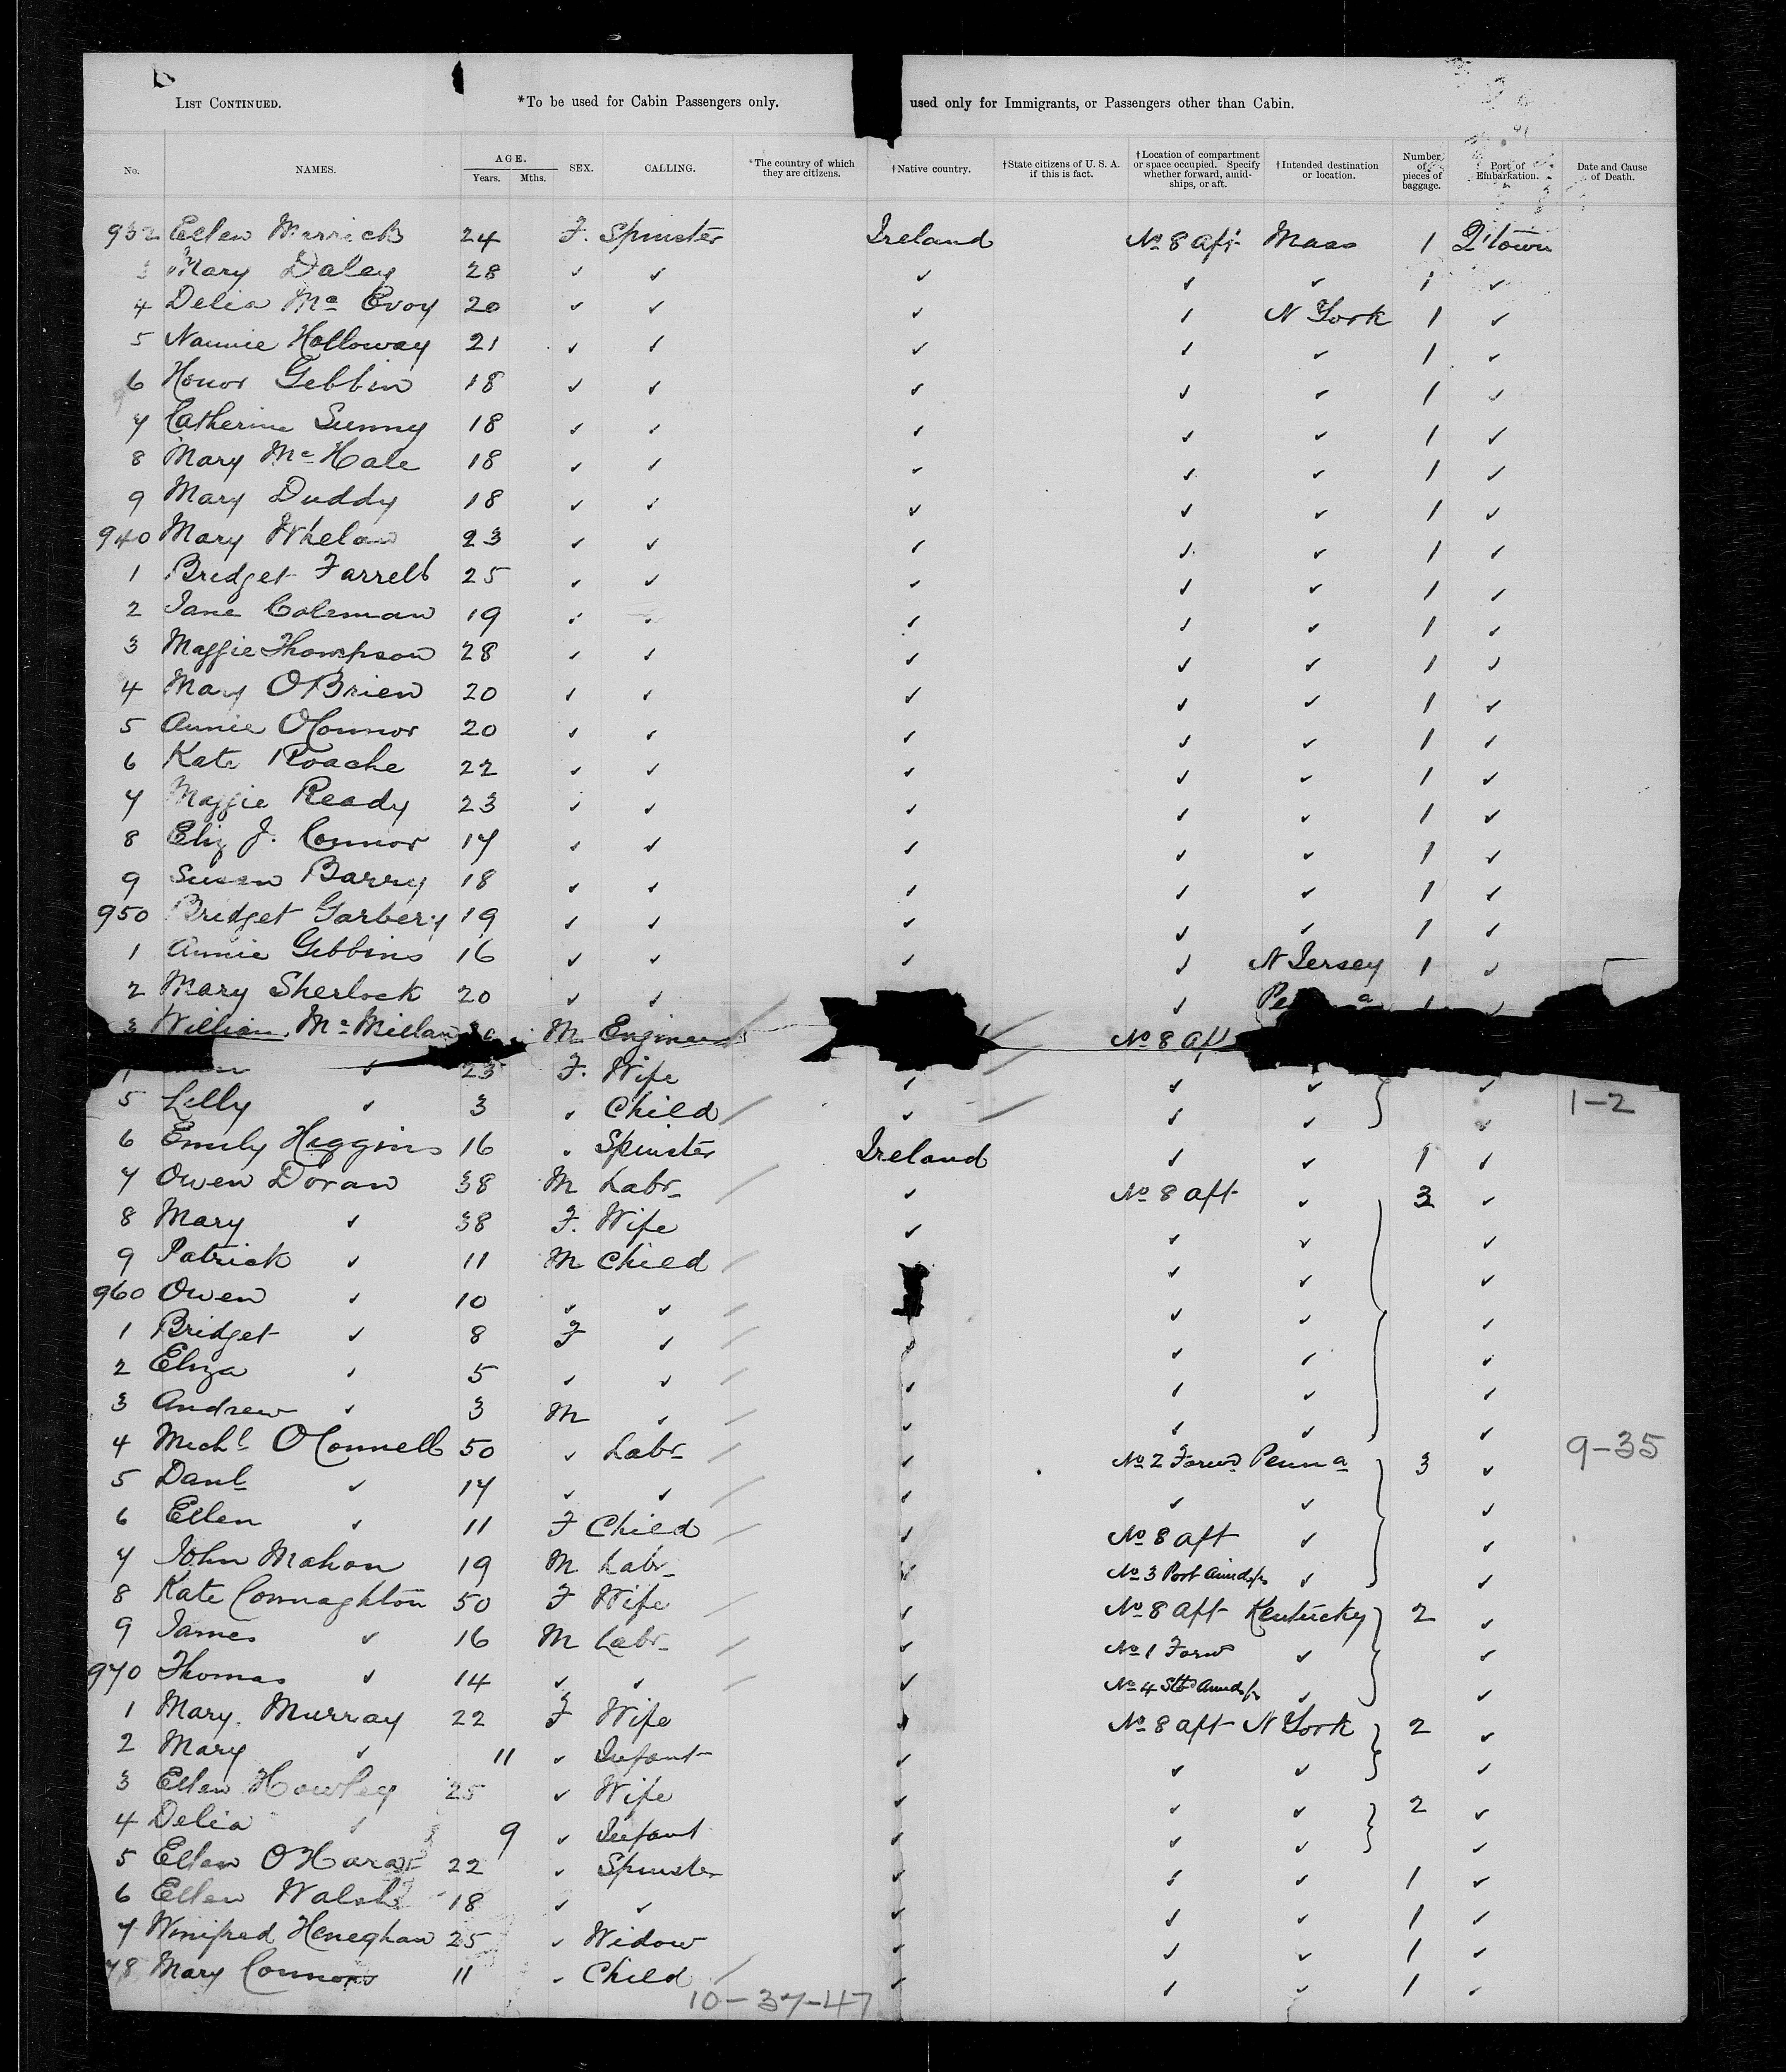 LIST CONTINUED. *To be used for Cabin Passengers only. used only for Immigrants, or Passengers other than Cabin.
No. NAMES. AGE. Years. Mths. SEX. CALLING. *The country of which they are citizens. †Native country. †State citizens of U. S. A. if this is fact. †Location of compartment or space occupied. Specify whether forward, amidships, or aft. †Intended destination or location. Number of pieces of baggage. Port of Embarkation. Date and Cause of Death.
932 Ellen Merrick 24 F. Spinster Ireland No 8 aft Mass 1 Q'town
3 Mary Daley 28 ✓ ✓ ✓ ✓ ✓ 1 ✓
4 Delia Mc Evoy 20 ✓ ✓ ✓ ✓ N York 1 ✓
5 Nannie Holloway 21 ✓ ✓ ✓ ✓ ✓ 1 ✓
6 Honor Gebbin 18 ✓ ✓ ✓ ✓ ✓ 1 ✓
7 Catherine Sunny 18 ✓ ✓ ✓ ✓ ✓ 1 ✓
8 Mary Mc Hale 18 ✓ ✓ ✓ ✓ ✓ 1 ✓
9 Mary Duddy 18 ✓ ✓ ✓ ✓ ✓ 1 ✓
940 Mary Whelan 23 ✓ ✓ ✓ ✓ ✓ 1 ✓
1 Bridget Farrell 25 ✓ ✓ ✓ ✓ ✓ 1 ✓
2 Jane Coleman 19 ✓ ✓ ✓ ✓ ✓ 1 ✓
3 Maggie Thompson 28 ✓ ✓ ✓ ✓ ✓ 1 ✓
4 Mary OBrien 20 ✓ ✓ ✓ ✓ ✓ 1 ✓
5 Annie OConnor 20 ✓ ✓ ✓ ✓ ✓ 1 ✓
6 Kate Roache 22 ✓ ✓ ✓ ✓ ✓ 1 ✓
7 Maggie Ready 23 ✓ ✓ ✓ ✓ ✓ 1 ✓
8 Eliz J. Connor 17 ✓ ✓ ✓ ✓ ✓ 1 ✓
9 Susan Barry 18 ✓ ✓ ✓ ✓ ✓ 1 ✓
950 Bridget Garbery 19 ✓ ✓ ✓ ✓ ✓ 1 ✓
1 Annie Gebbins 16 ✓ ✓ ✓ ✓ N Jersey 1 ✓
2 Mary Sherlock 20 ✓ ✓ ✓ 1 ✓
3 William Mc Millan M Engineer No 8 aft
23 F. Wife ✓ ✓ ✓ ✓
5 Lilly ✓ 3 ✓ Child ✓ ✓ ✓ ✓ 1-2
6 Emily Higgins 16 ✓ Spinster Ireland ✓ ✓ 1 ✓
7 Owen Doran 38 M Labr ✓ No 8 aft ✓ 3 ✓
8 Mary ✓ 38 F. Wife ✓ ✓ ✓ ✓
9 Patrick ✓ 11 M Child ✓ ✓ ✓
960 Owen ✓ 10 ✓ ✓ ✓ ✓ ✓
1 Bridget ✓ 8 F ✓ ✓ ✓ ✓ ✓
2 Eliza ✓ 5 ✓ ✓ ✓ ✓ ✓ ✓
3 Andrew ✓ 3 M ✓ ✓ ✓ ✓ ✓
4 Michl OConnell 50 ✓ Labr ✓ No 2 Forwd Penna 3 ✓ 9-35
5 Danl ✓ 17 ✓ ✓ ✓ ✓ ✓ ✓
6 Ellen ✓ 11 F Child ✓ No 8 aft ✓ ✓
7 John Mahon 19 M Labr ✓ No 3 Port Amids/s ✓ ✓
8 Kate Connaghton 50 F Wife ✓ No 8 aft Kentucky 2 ✓
9 James ✓ 16 M Labr ✓ No 1 Forwd ✓ ✓
970 Thomas ✓ 14 ✓ ✓ ✓ No 4 Stb Amids/s ✓ ✓
1 Mary Murray 22 F Wife ✓ No 8 aft N York 2 ✓
2 Mary ✓ 11 ✓ Infant ✓ ✓ ✓ ✓
3 Ellen Howley 25 ✓ Wife ✓ ✓ ✓ 2 ✓
4 Delia ✓ 9 ✓ Infant ✓ ✓ ✓ ✓
5 Ellen OHara 22 ✓ Spinster ✓ ✓ ✓ 1 ✓
6 Ellen Walsh 18 ✓ ✓ ✓ ✓ ✓ 1 ✓
7 Winifred Heneghan 25 ✓ Widow ✓ ✓ ✓ 1 ✓
78 Mary Connors 11 ✓ Child ✓ ✓ ✓ 1 ✓
10-37-47